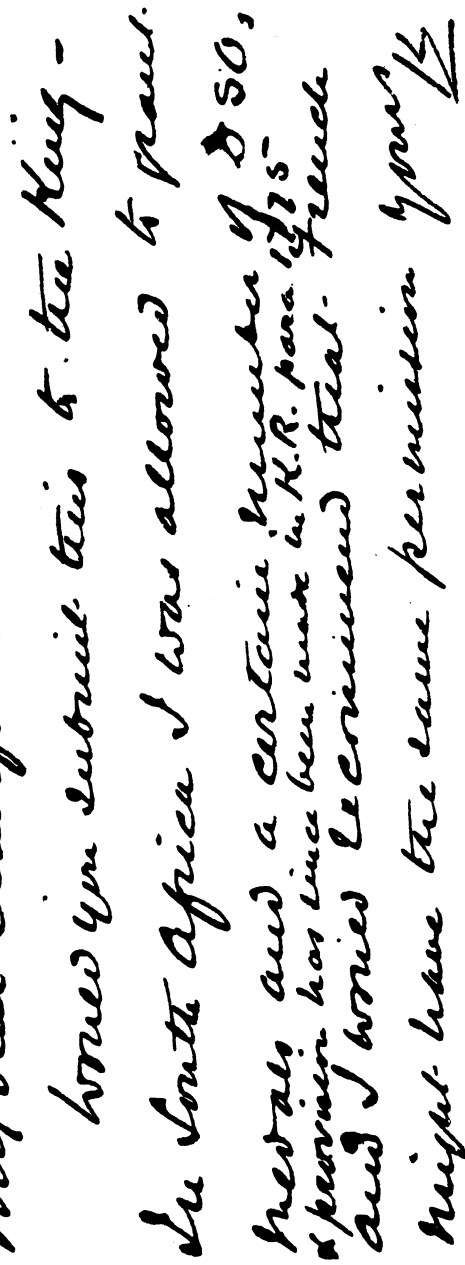 would you submit this to the King -
In South Africa I was allowed to grant
medals and a certain number of DSO,
& provision has since been made in K.R. para 1725
and I would recommend that French
might have the same permission Yours K